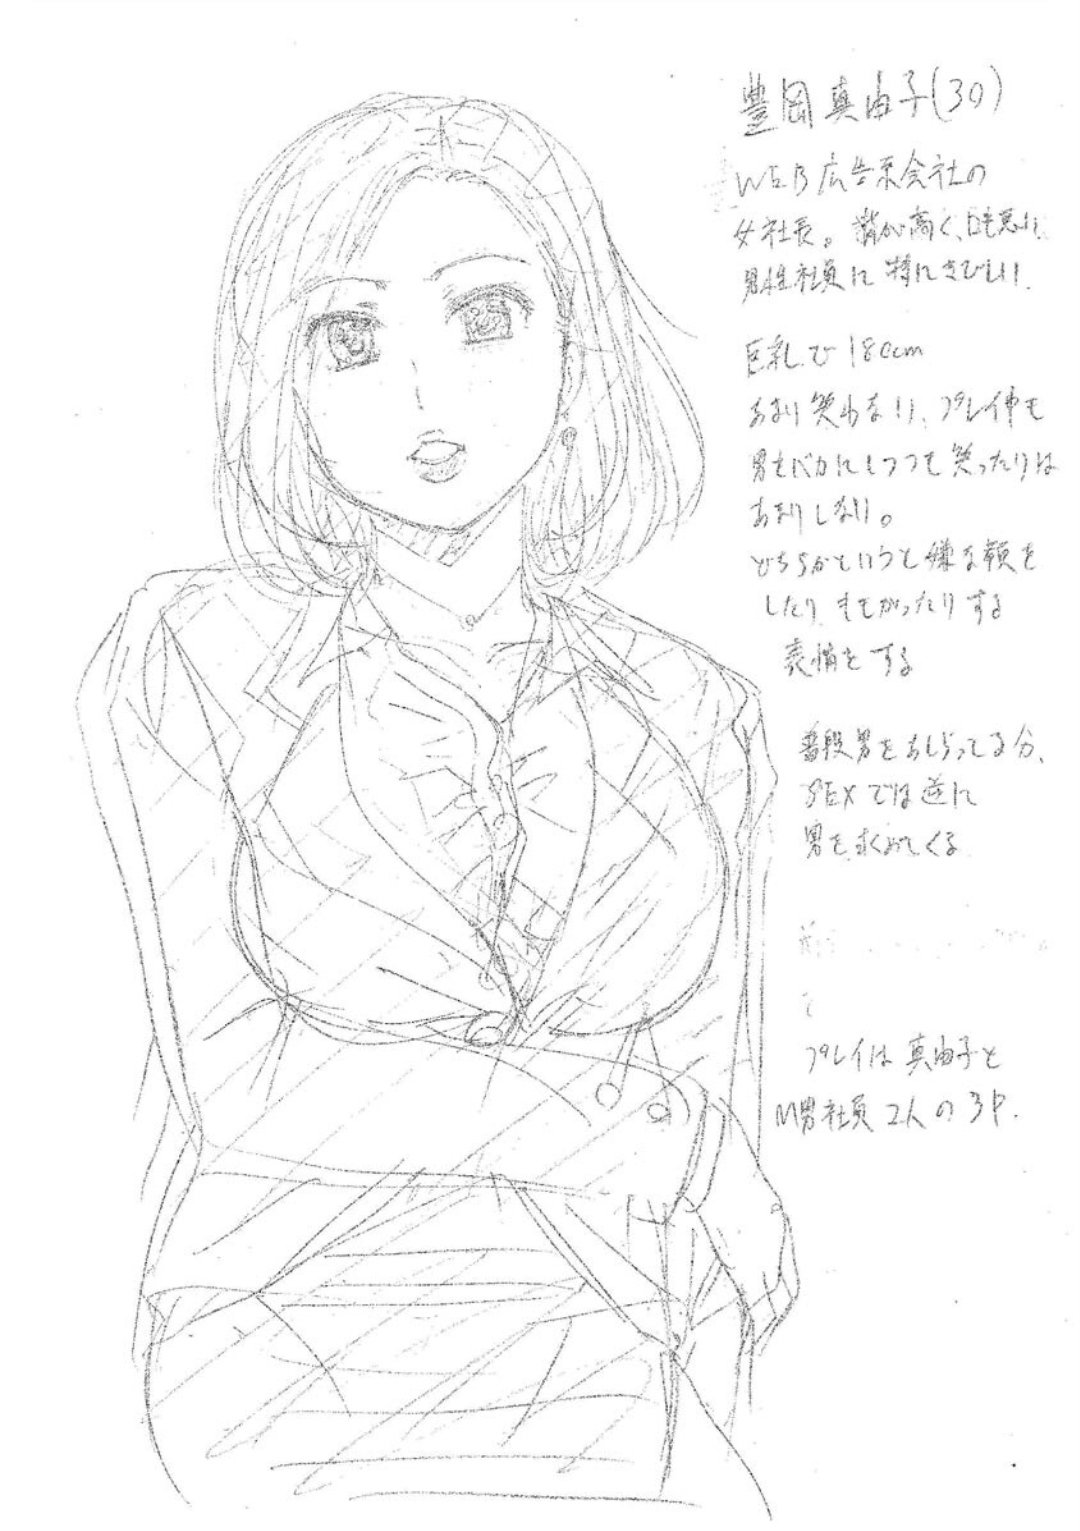 豊岡真由子(30)
WEB広告系会社の
女社長。背が高く、口も悪い
男性社員に特にきびしい
巨乳で180cm
あまり笑わない、プレイ中も
男をバカにしつつも笑ったりは
あまりしない。
どちらかというと嫌な顔を
したり するがったりする
表情をする
普段男をあしらってる分、
SEXでは逆に
男を求めてくる
プレイは真由子と
M男社員2人の3P.